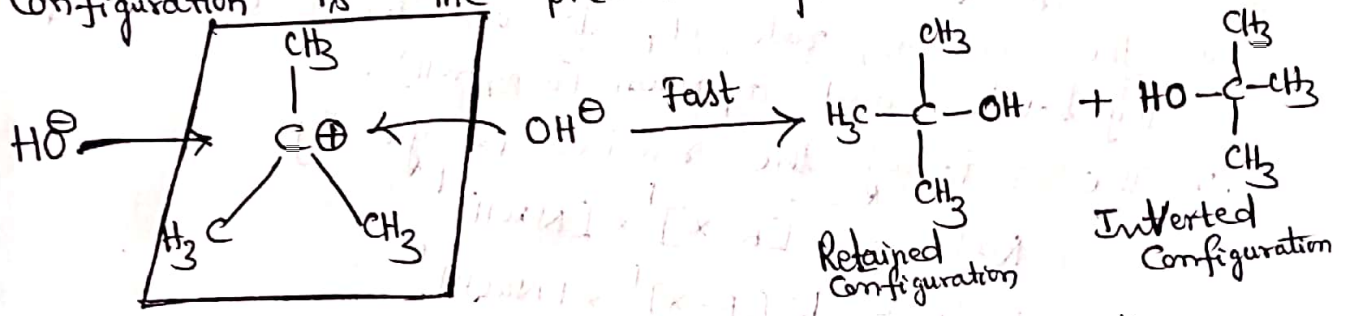 Configuration is the
CH3
HO⊖ C⊕ OH⊖ Fast
H3C CH3
CH3
H3C—C—OH + HO—C—CH3
CH3
CH3
CH3
Retained
Configuration
Inverted
Configuration